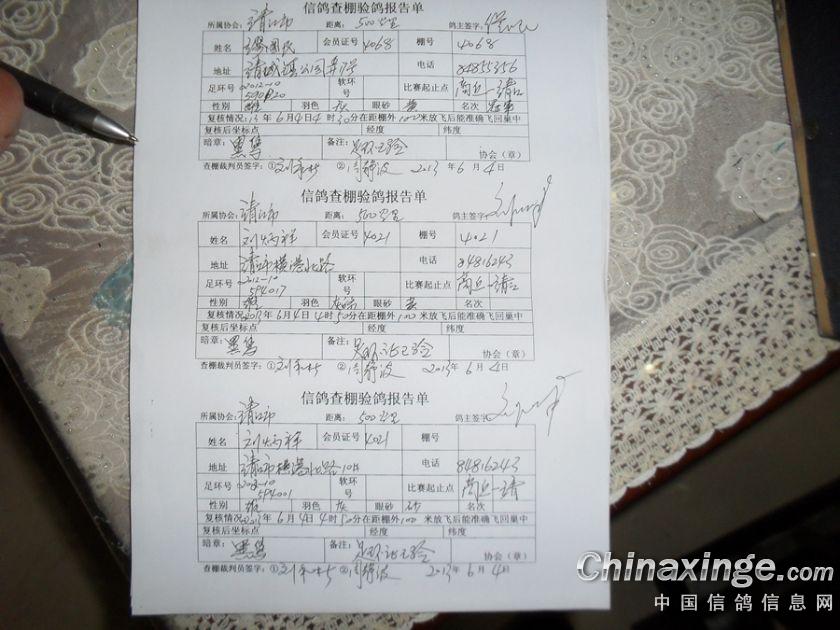 信鸽查棚验鸽报告单
所属协会: 靖江市 距离: 500公里 鸽主签字:
姓名 国民 会员证号 4068 棚号 4068
地址 靖城镇公园弄7号 电话 84855356
足环号 2012-10 软环号 比赛起止点 商丘—靖江
性别 雄 羽色 灰 眼砂 黄 名次
复核情况: 13年6月4日4时30分在距棚外1000米放飞后能准确飞回巢中
复核后坐标点 经度 纬度
暗章: 备注: 足环已验 协会(章)
查棚裁判员签字: ① ② 2013年6月4日
信鸽查棚验鸽报告单
所属协会: 靖江市 距离: 500公里 鸽主签字:
姓名 刘炳祥 会员证号 4021 棚号 4021
地址 靖江市横港北路 电话 84816243
足环号 2012-10 594017 软环号 比赛起止点 商丘—靖江
性别 雄 羽色 眼砂 黄 名次
复核情况2013年6月4日4时50分在距棚外1000米放飞后能准确飞回巢中
复核后坐标点 经度 纬度
暗章: 备注: 足环证已验 协会(章)
查棚裁判员签字: ① ② 2013年6月4日
信鸽查棚验鸽报告单
所属协会: 靖江市 距离: 500公里 鸽主签字
姓名 刘炳祥 会员证号 4021 棚号
地址 靖江市横港北路 电话 84816243
足环号 594001 软环号 比赛起止点 商丘—靖
性别 雄 羽色 灰 眼砂 砂 名次
复核情况2013年6月4日4时50分在距棚外1000米放飞后能准确飞回巢中
复核后坐标点 经度 纬度
暗章: 备注: 足环证已验 协会(章)
查棚裁判员签字: ① ② 2013年6月4日
Chinaxinge.com
中国信鸽信息网